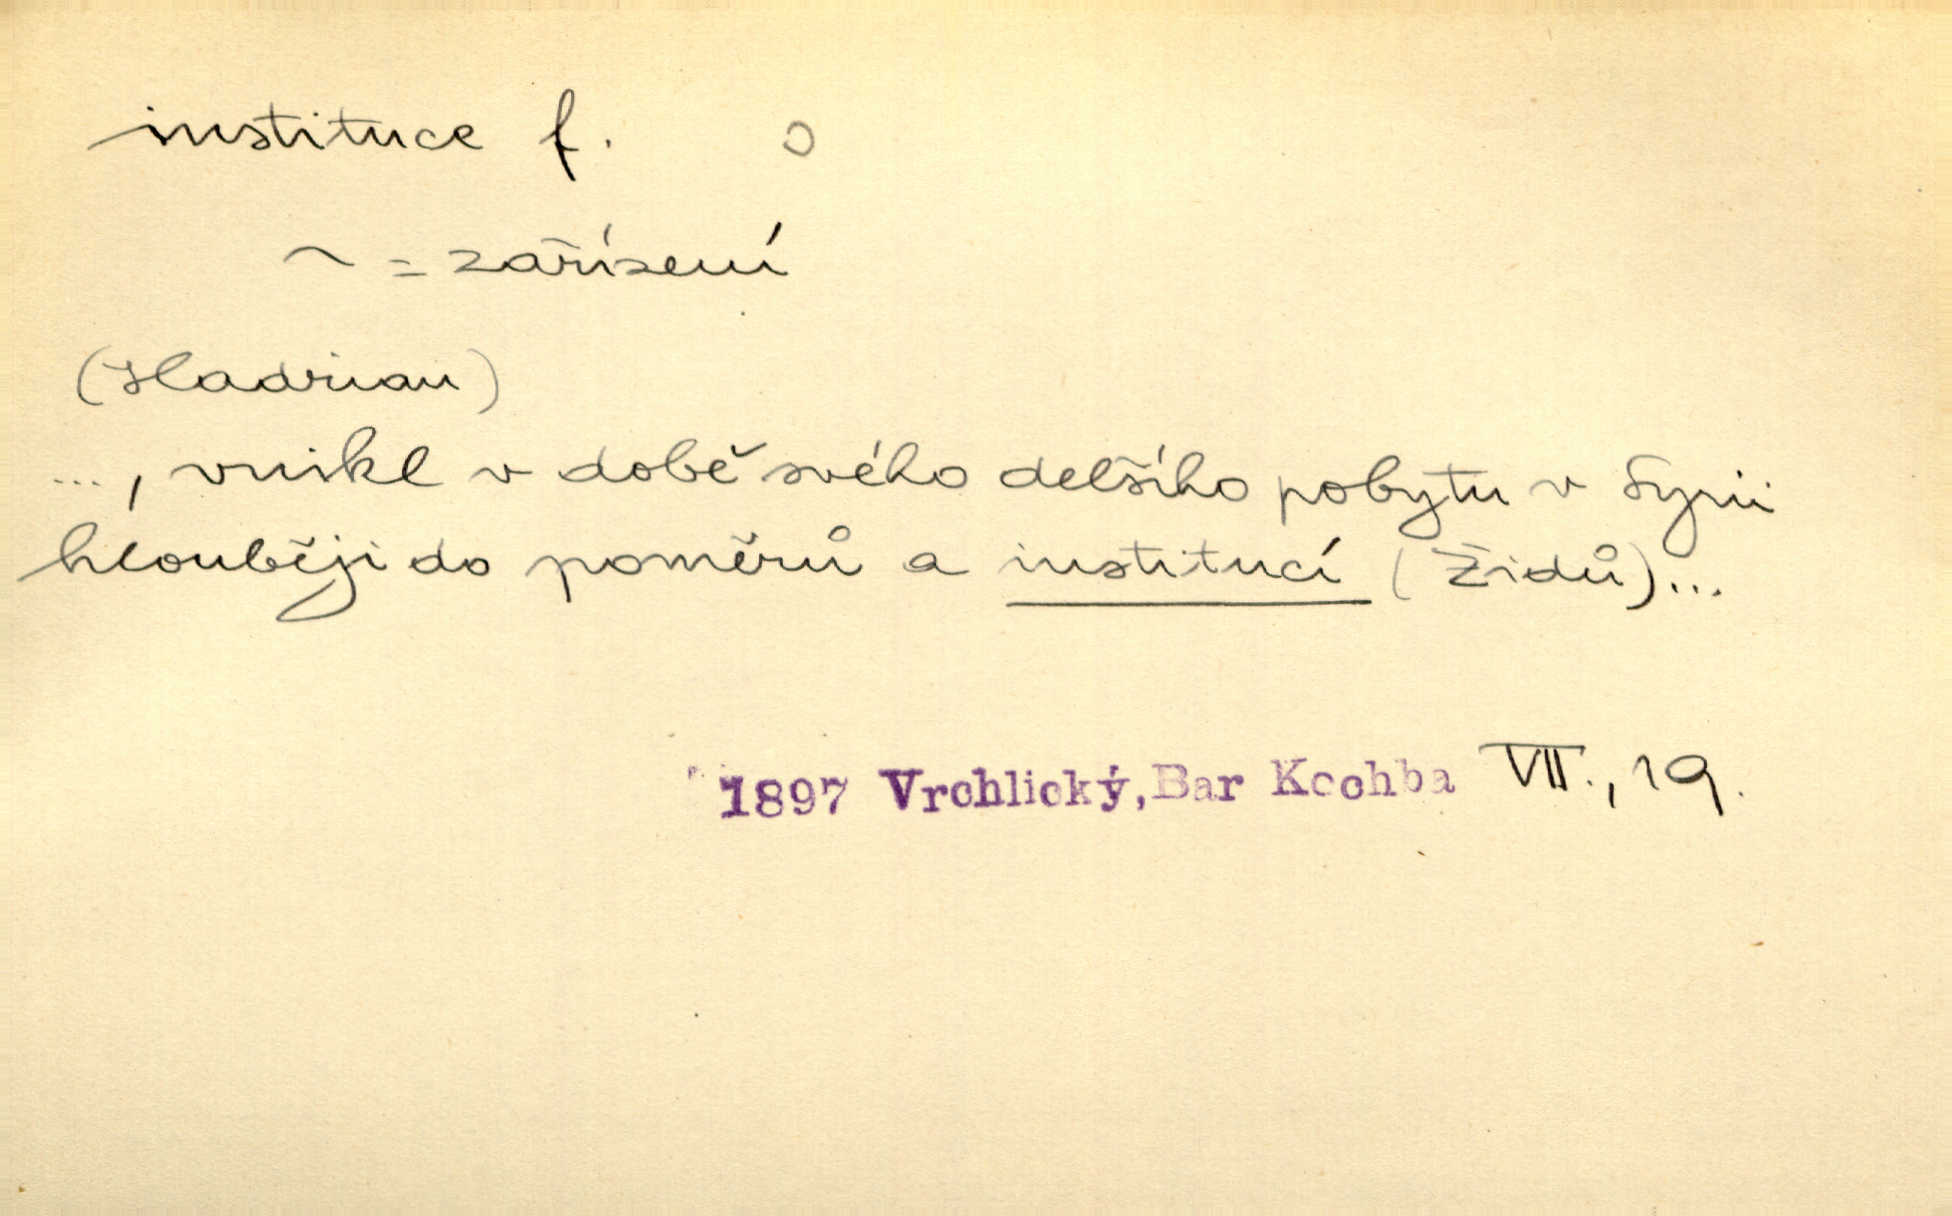 instituce f. o
~ = zařízení
(Hadrian)
..., vnikl v době svého delšího pobytu v Syrii
hlouběji do poměrů a institucí (Židů)...
1897 Vrchlický, Bar Kochba VII., 19.